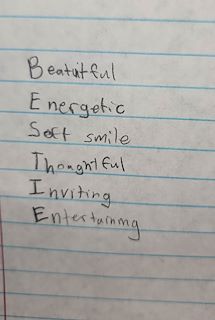 Beatutful
Energetic
Soft smile
Thoughtful
Inviting
Entertaining